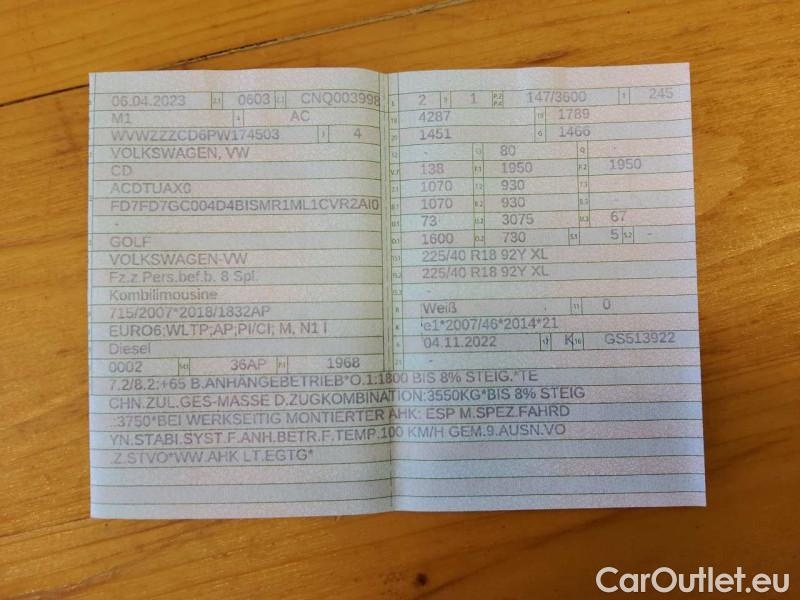 06.04.2023 2.1 0603 2.2 CNQ003998
M1 4 AC
WVWZZZCD6PW174503 3 4
VOLKSWAGEN, VW
CD
ACDTUAX0
FD7FD7GC004D4BISMR1ML1CVR2AI0
-
GOLF
VOLKSWAGEN-VW
Fz.z.Pers.bef.b. 8 Spl.
Kombilimousine
715/2007*2018/1832AP
EURO6;WLTP;AP;PI/CI; M, N1 I
Diesel
0002 14.1 36AP P.1 1968
L 2 9 1 P.2 P.4 147/3600 T 245
18 4287 19 1789
20 1451 G 1466
12 - 13 80 Q -
V.7 138 F.1 1950 F.2 1950
7.1 1070 7.2 930 7.3 -
8.1 1070 8.2 930 8.3 -
U.1 73 U.2 3075 U.3 67
O.1 1600 O.2 730 S.1 5 S.2 -
15.1 225/40 R18 92Y XL
15.2 225/40 R18 92Y XL
15.3 -
R Weiß 11 0
K e1*2007/46*2014*21
6 04.11.2022 17 K 16 GS513922
21 -
7.2/8.2:+65 B.ANHÄNGEBETRIEB*O.1:1800 BIS 8% STEIG.*TE
CHN.ZUL.GES-MASSE D.ZUGKOMBINATION:3550KG*BIS 8% STEIG
.:3750*BEI WERKSEITIG MONTIERTER AHK: ESP M.SPEZ.FAHRD
YN.STABI.SYST.F.ANH.BETR.F.TEMP.100 KM/H GEM.9.AUSN.VO
.Z.STVO*WW.AHK LT.EGTG*
CarOutlet.eu